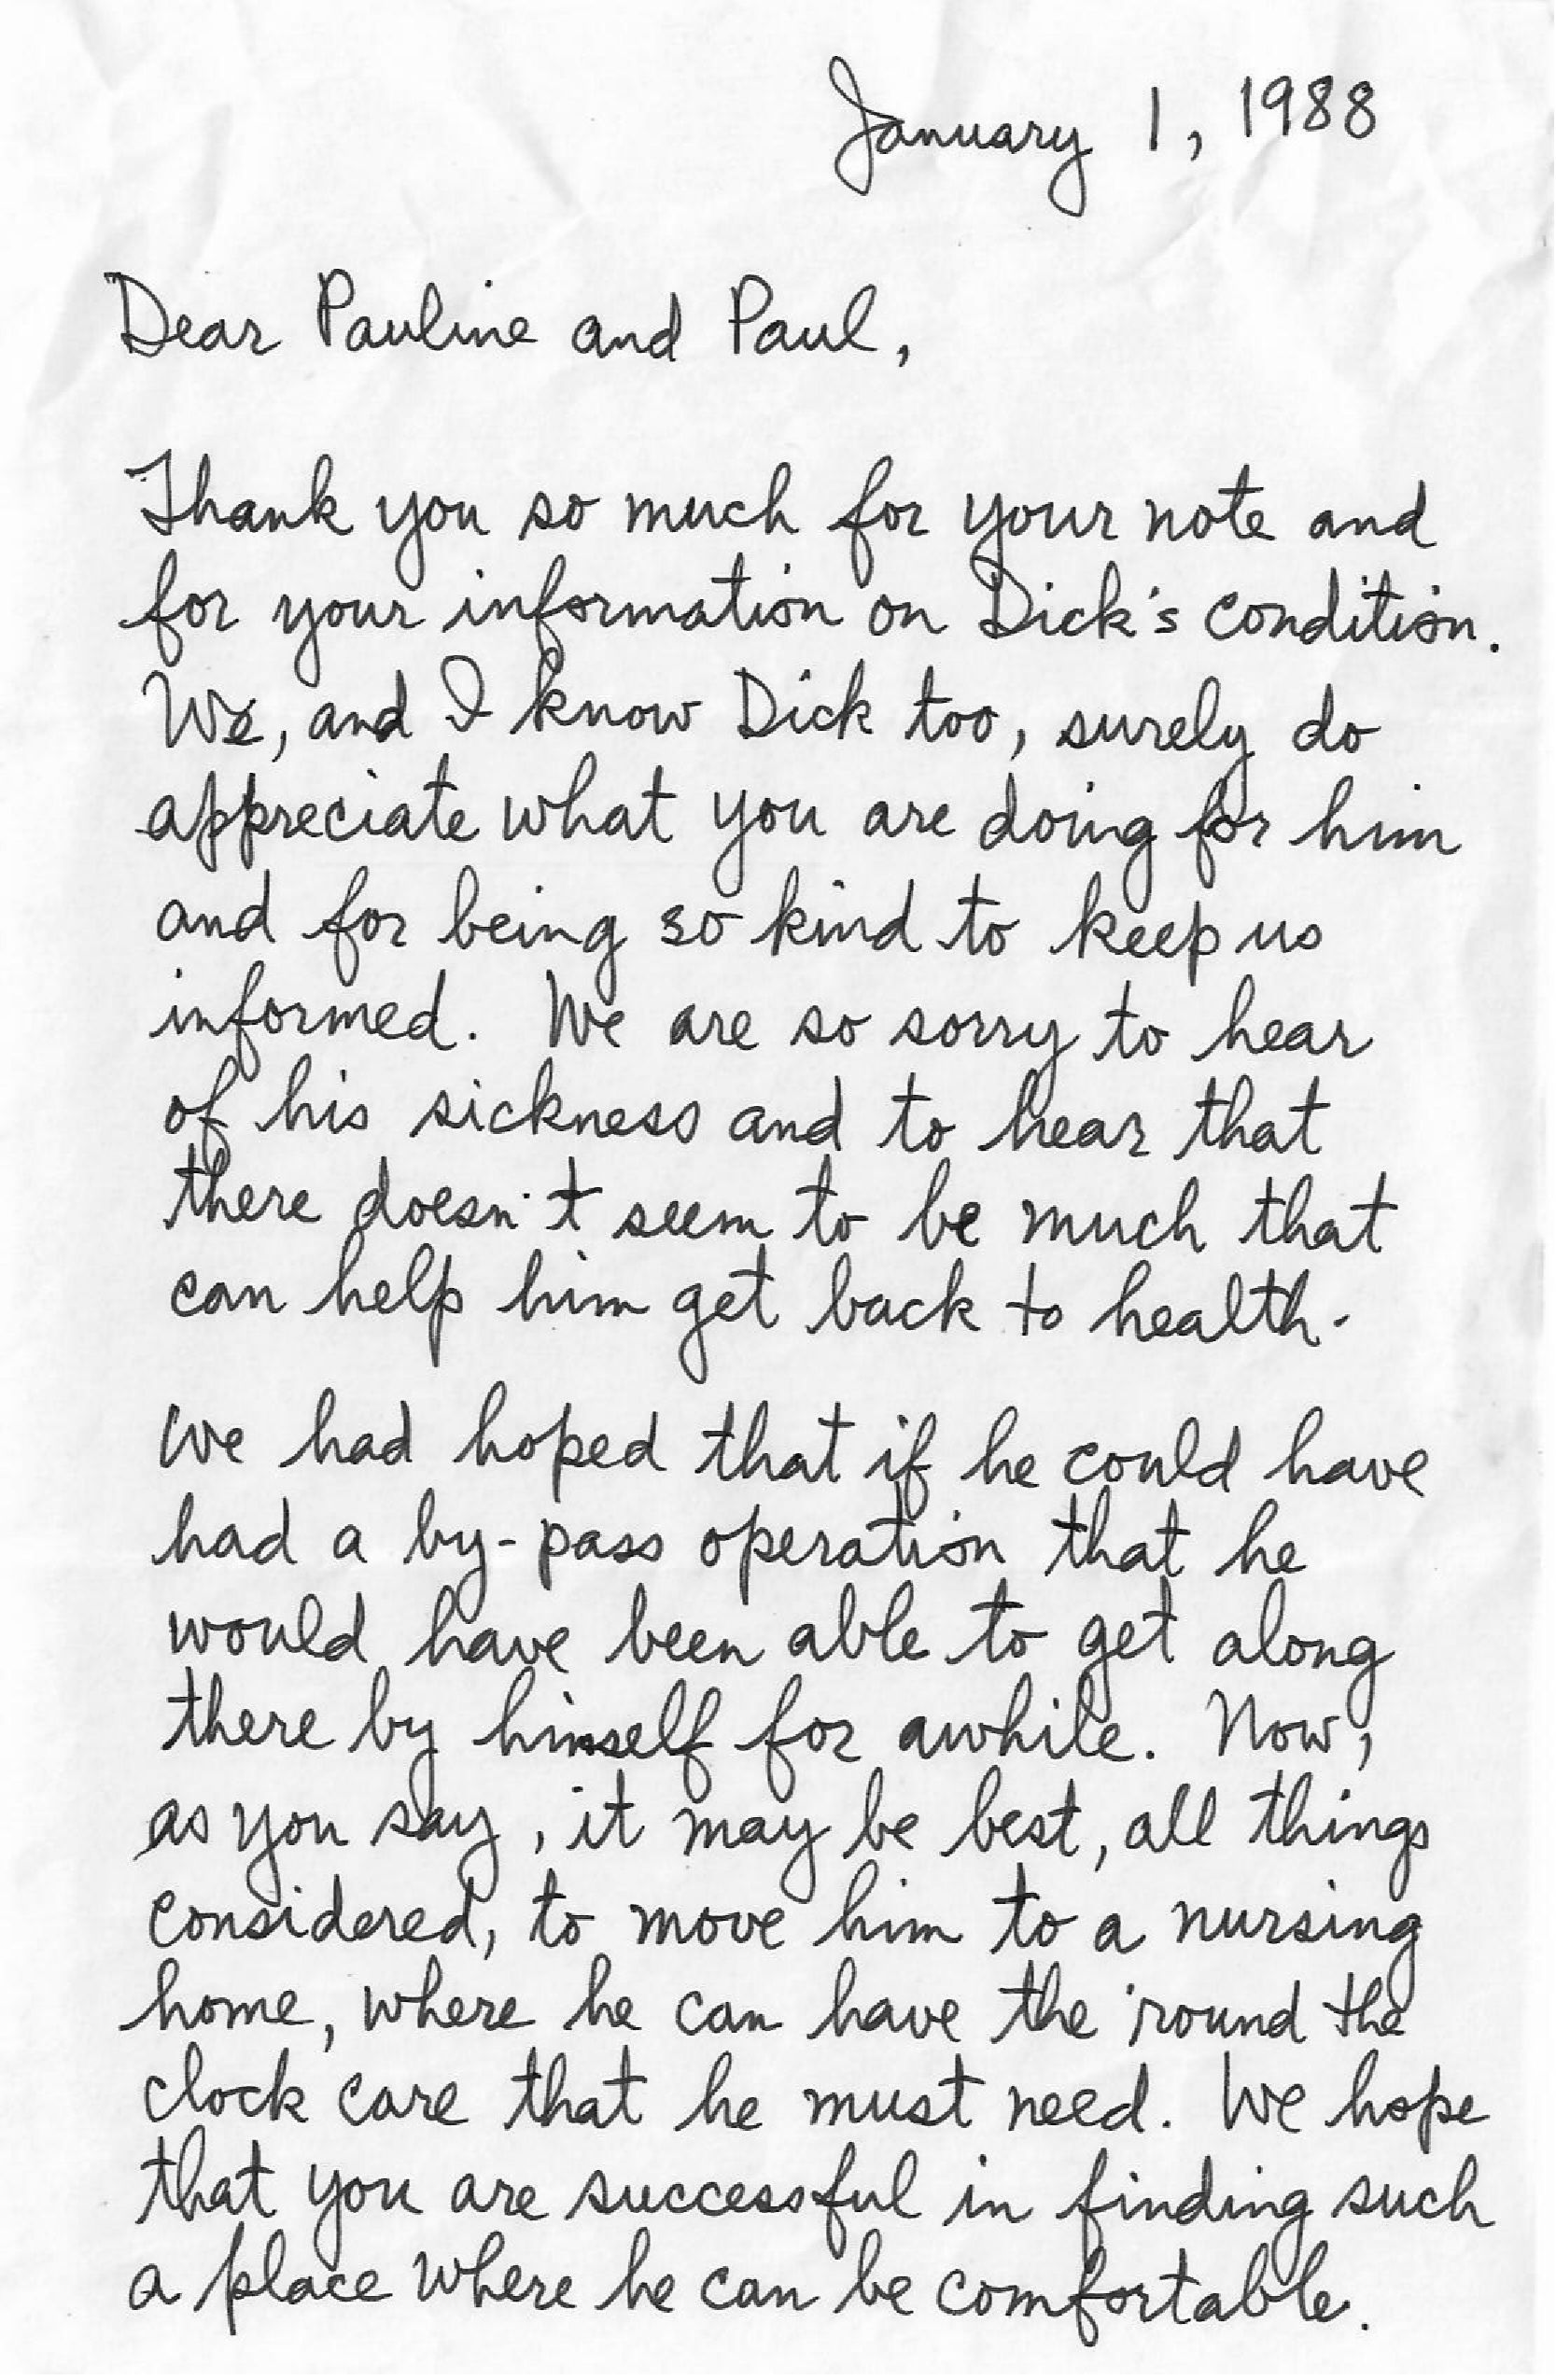 January 1, 1988
Dear Pauline and Paul,
Thank you so much for your note and
for your information on Dick's condition.
We, and I know Dick too, surely do
appreciate what you are doing for him
and for being so kind to keep us
informed. We are so sorry to hear
of his sickness and to hear that
there doesn't seem to be much that
can help him get back to health.
We had hoped that if he could have
had a by-pass operation that he
would have been able to get along
there by himself for awhile. Now,
as you say, it may be best, all things
considered, to move him to a nursing
home, where he can have the 'round the
clock care that he must need. We hope
that you are successful in finding such
a place where he can be comfortable.